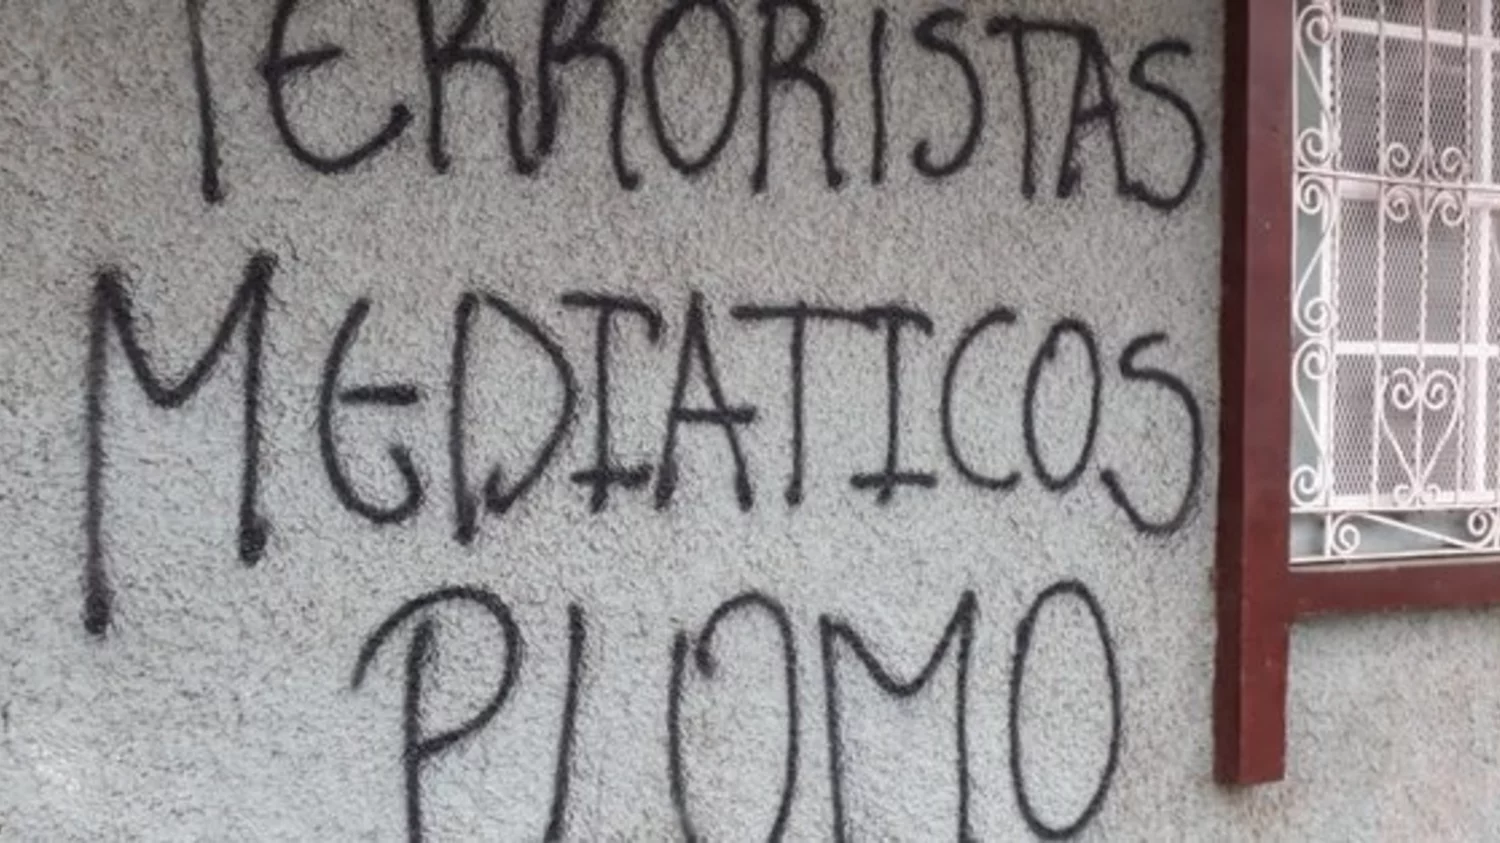 TERRORISTAS
MEDIATICOS
PLOMO